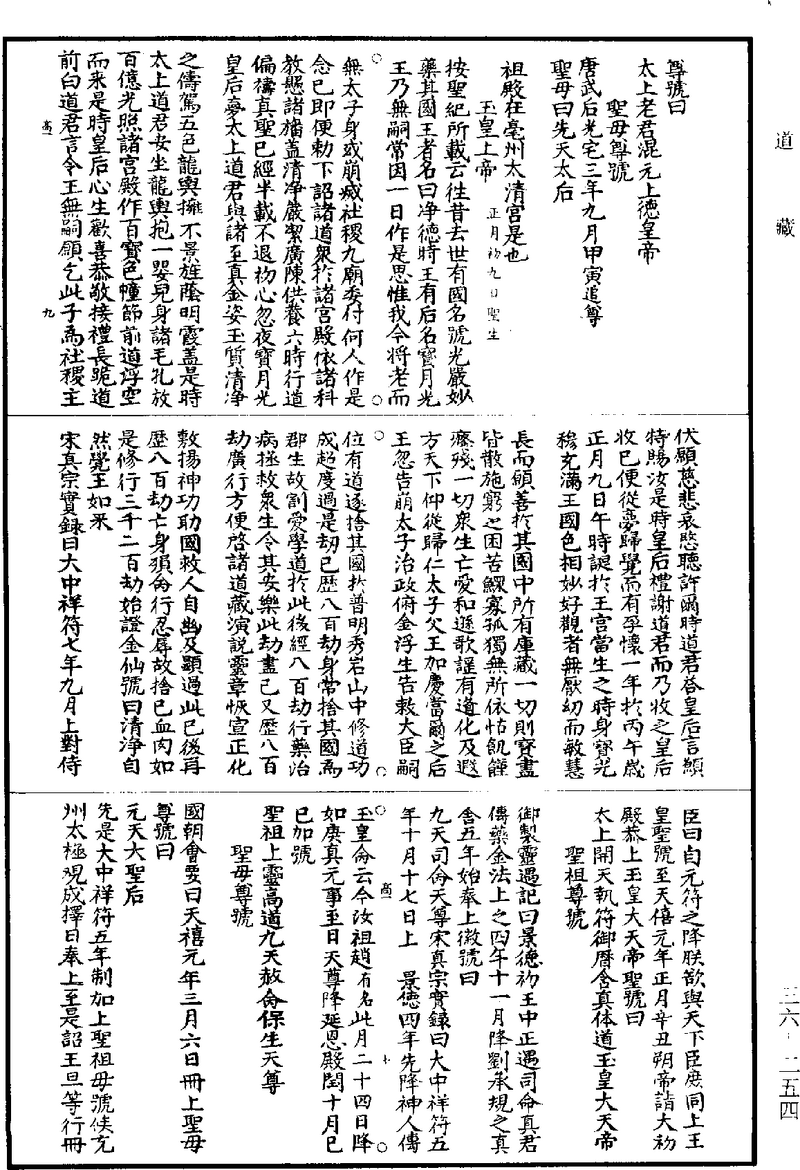 道藏
尊號曰
太上老君混元上德皇帝
聖母尊號
唐武后光宅三年九月甲寅追尊
聖母曰先天太后
祖殿在亳州太清宮是也
玉皇上帝 正月初九日聖生
按聖紀所載云往昔去世有國名號光嚴妙
藥其國王者名曰淨德時王有后名寶月光
王乃無嗣常因一日作是思惟我今將老而
無太子身或崩滅社稷九廟委付何人作是
念已即便勅下詔諸道衆於諸宮殿依諸科
教懸諸旛蓋清淨嚴潔廣陳供養六時行道
徧禱真聖已經半載不退初心忽夜寶月光
皇后夢太上道君與諸至真金姿玉質清淨
之儔駕五色龍輿擁不景旌蔭明霞蓋是時
太上道君安坐龍輿抱一嬰兒身諸毛孔放
百億光照諸宮殿作百寶色幢節前道浮空
而來是時皇后心生歡喜恭敬接禮長跪道
前白道君言令王無嗣願乞此子為社稷主
高一
九
伏願慈悲哀愍聽許爾時道君答皇后言願
特賜汝是時皇后禮謝道君而乃收之皇后
收已便從夢歸覺而有孕懷一年於丙午歲
正月九日午時誕於王宮當生之時身寶光
穆充滿王國色相妙好觀者無厭幼而敏慧
長而願善於其國中所有庫藏一切則寶盡
皆散施窮乏困苦鰥寡孤獨無所依怙飢饉
癃殘一切衆生亡愛和遜歌謡有道化及遐
方天下仰從歸仁太子父王加慶當爾之後
王忽告崩太子治政俯金浮生告敕大臣嗣
位有道遂捨其國於普明秀岩山中修道功
成超度過是劫已歷八百劫身常捨其國為
郡生故割愛學道於此後經八百劫行藥治
病拯救衆生令其安樂此劫盡已又歷八百
劫廣行方便啓諸道藏演説靈章恢宣正化
敷揚神功助國救人自幽及顯過此已後再
歷八百劫亡身殞命行忍辱故捨已血肉如
是修行三千二百劫始證金仙號曰清淨自
然覺王如來
宋真宗實錄曰大中祥符七年九月上對侍
臣曰自元符之降朕欲與天下臣庶同上玉
皇聖號至天禧元年正月辛丑朔帝詣大初
殿恭上玉皇大天帝聖號曰
太上開天執符御曆含真体道玉皇大天帝
聖祖尊號
御製靈遇記曰景德初王中正遇司命真君
傳藥金法上之四午十一月降劉承規之真
舍五年始奉上徽號曰
九天司命天尊宋真宗實錄曰大中祥符五
年十月十七日上 景德四年先降神人傳
玉皇命云今汝祖趙有名此月二十四日降
如庚真元事至日天尊降延恩殿閏十月已
已加號
高一
十
聖祖上靈高道九天赦命保生天尊
聖母尊號
國朝會要曰天禧元年三月六日冊上聖母
尊號曰
元天大聖后
先是大中祥符五年制加上聖祖母號俟兗
州太極觀成擇日奉上至是詔王旦等行冊
三六·二五四